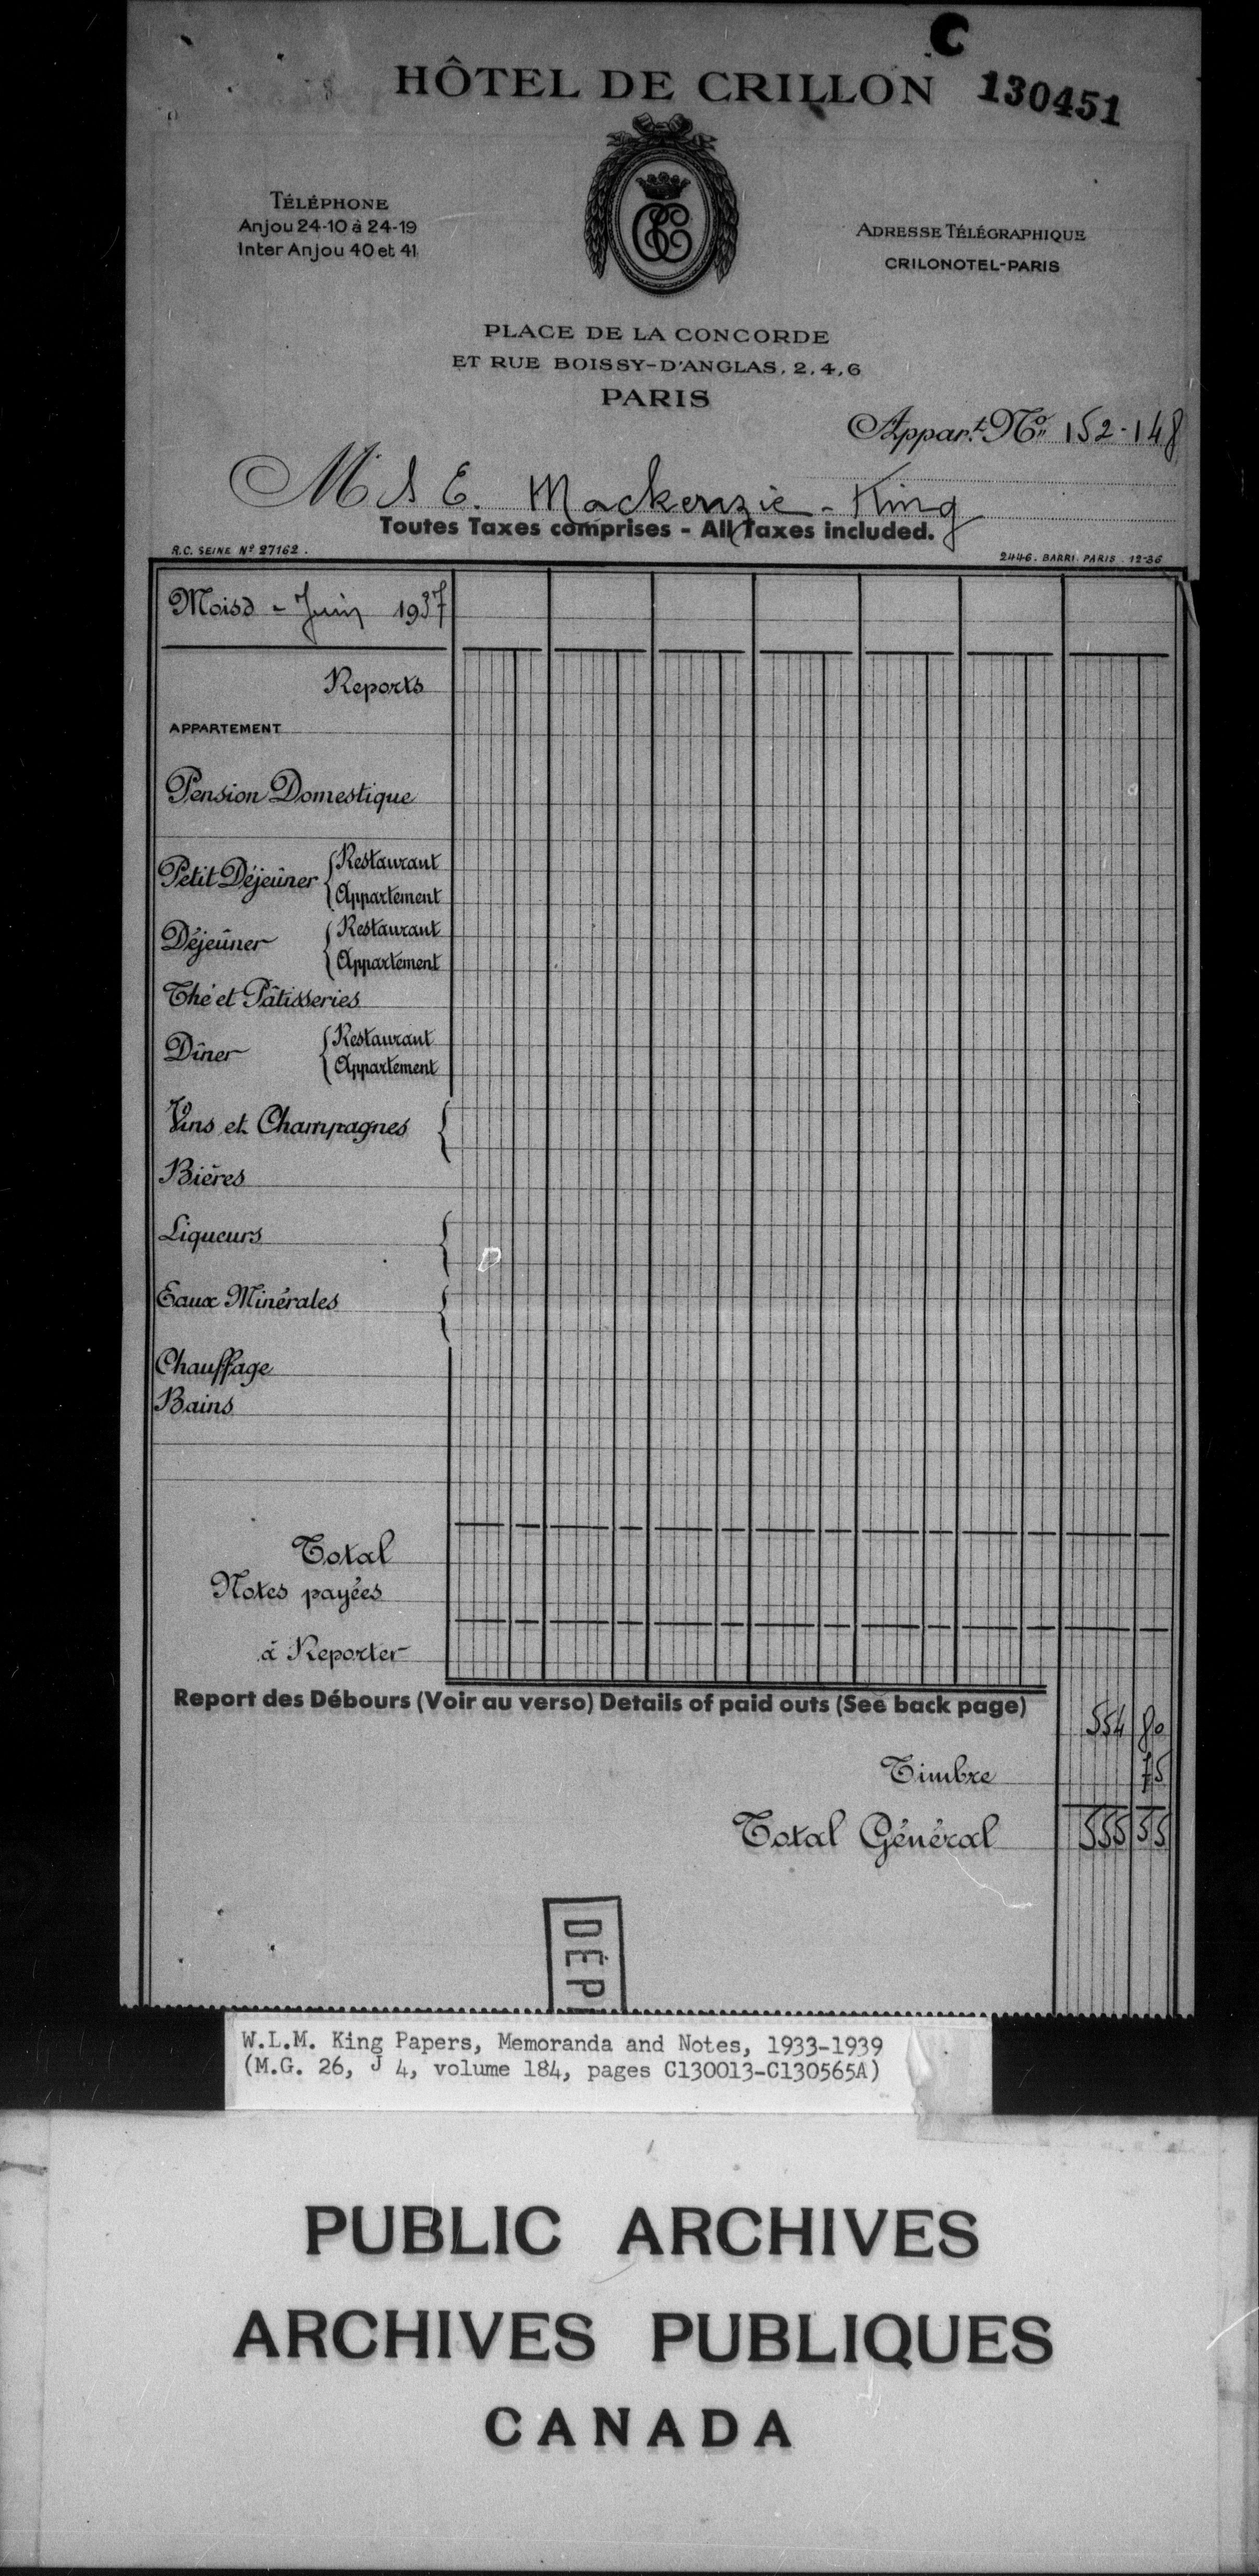 C
HÔTEL DE CRILLON 130451
TÉLÉPHONE
Anjou 24-10 à 24-19
Inter Anjou 40 et 41
ADRESSE TÉLÉGRAPHIQUE
CRILONOTEL-PARIS
PLACE DE LA CONCORDE
ET RUE BOISSY-D'ANGLAS, 2,4,6
PARIS
Appart. No. 152-148
M E. Mackenzie-King
Toutes Taxes comprises - All Taxes included.
R.C. SEINE Nº 27162.
2446. BARRI. PARIS. 12-36
Mois d - Juin 1937
Reports
APPARTEMENT
Pension Domestique
Petit Déjeûner { Restaurant
{ Appartement
Déjeûner { Restaurant
{ Appartement
Thé et Pâtisseries
Dîner { Restaurant
{ Appartement
Vins et Champagnes {
Bières
Liqueurs {
Eaux Minérales {
Chauffage
Bains
Total
Notes payées
à Reporter
Report des Débours (Voir au verso) Details of paid outs (See back page)
554 80
Timbre 75
Total Général 555 55
DÉP
W.L.M. King Papers, Memoranda and Notes, 1933-1939
(M.G. 26, J 4, volume 184, pages C130013-C130565A)
PUBLIC ARCHIVES
ARCHIVES PUBLIQUES
CANADA